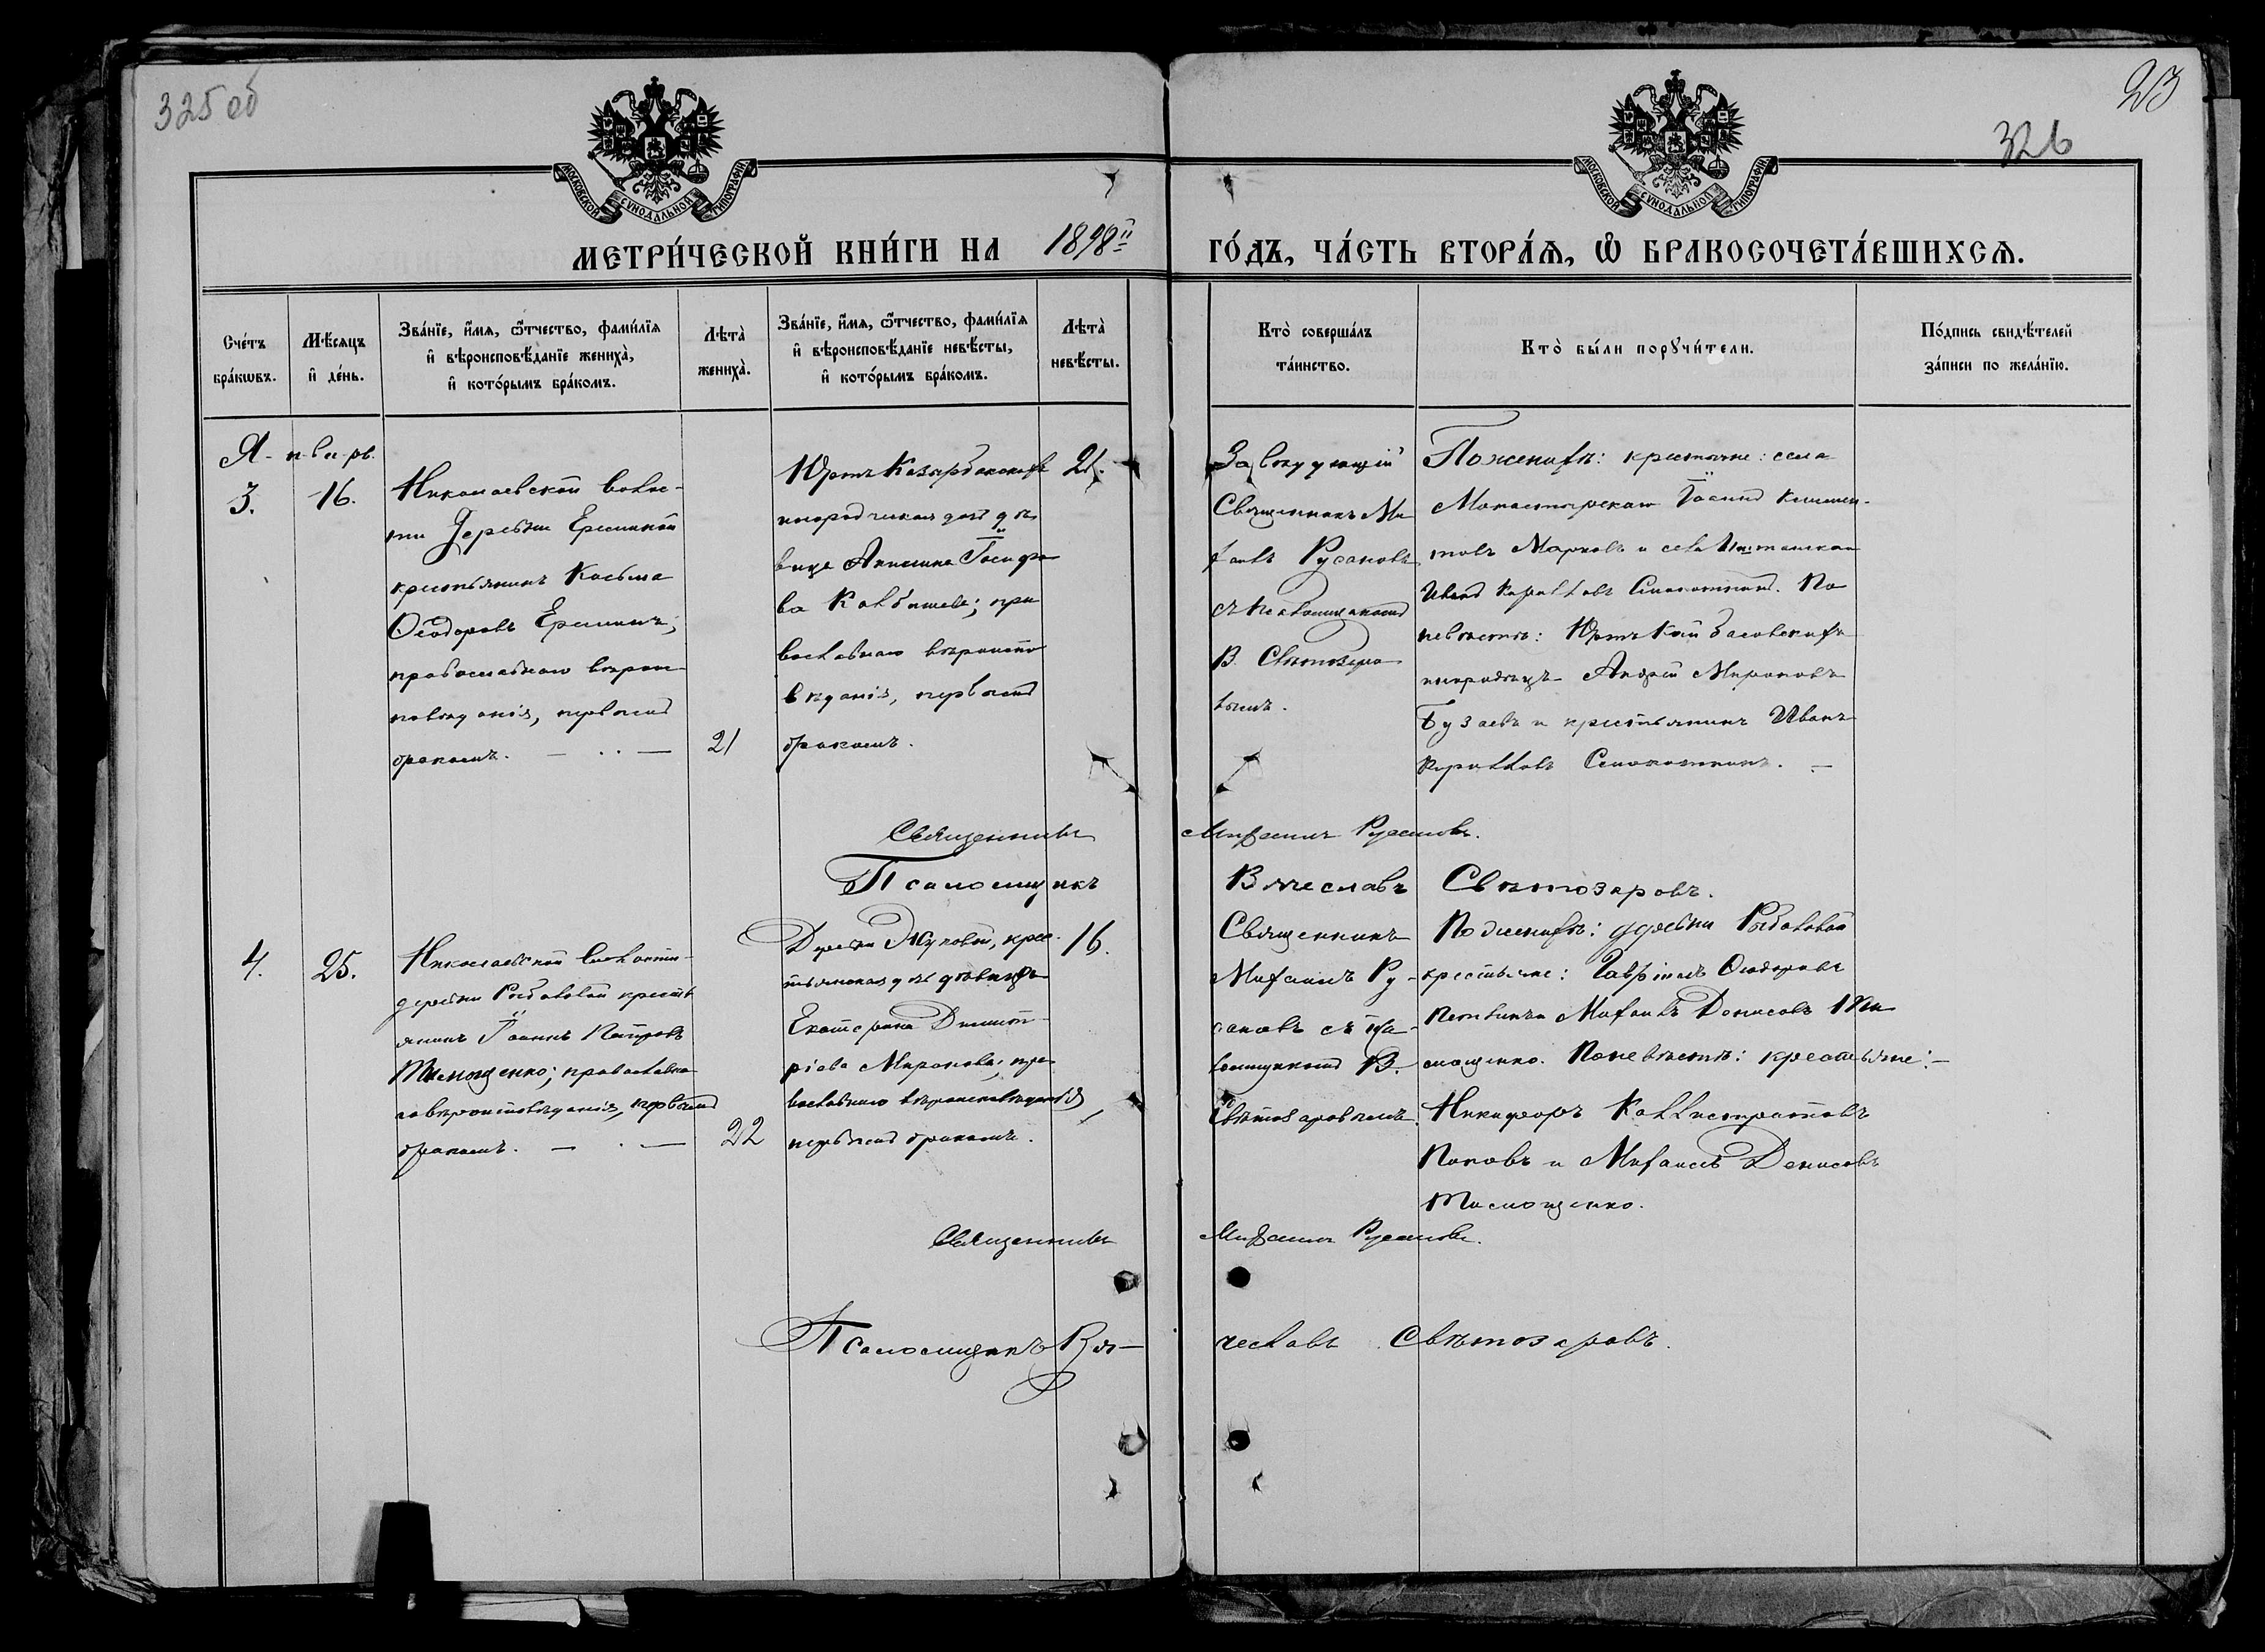 325 об
23
326
МОСКОВСКОЙ СѴНОДАЛЬНОЙ ТИПОГРАФІИ
МОСКОВСКОЙ СѴНОДАЛЬНОЙ ТИПОГРАФІИ
МЕТРИ́ЧЕСКОЙ КНИ́ГИ НА 1898й ГО́ДЪ, ЧА́СТЬ ВТОРА́Ѧ, Ѡ҆ БРАКОСОЧЕТА́ВШИХСѦ.
Сче́тъ бра́кѡвъ.
Мѣ́сѧцъ и҆ де́нь.
Зва́нїе, и҆́мѧ, ѻ҆́тчество, фами́лїѧ
и҆ вѣроисповѣ́данїе жениха̀,
и҆ кото́рымъ бра́комъ.
Лѣта̀ жениха̀.
Зва́нїе, и҆́мѧ, ѻ҆́тчество, фами́лїѧ
и҆ вѣроисповѣ́данїе невѣ́сты,
и҆ кото́рымъ бра́комъ.
Лѣта̀ невѣ́сты.
Кто̀ соверша́лъ та́инство.
Кто̀ бы́ли порꙋчи́тели.
По́дпись свидѣ́телей за́писи по жела́нїю.
Я-н-ва-рь.
3.
16.
Николаевской волос-
ти деревни Ереминой
крестьянинъ Косьма
Ѳеодоровъ Ереминъ;
православнаго вѣроис-
повѣданія, первымъ
бракомъ.
21
Юртъ
инородческая дочь дѣ-
вица Іосифо-
ва; пра-
вославнаго вѣроиспо-
вѣданія, первымъ
бракомъ.
21.
Завѣдующій
Священникъ Ми-
хаилъ Русановъ
съ псаломщикомъ
В. Свѣтозаро-
вымъ.
По женихѣ: крестьяне: села
Монастырскаго Іоаннъ Климен-
товъ Марковъ и села
Иванъ Кирилловъ. По
невѣстѣ: Юртъ
инородецъ Андрей Мироновъ
Бузаевъ и крестьянинъ Иванъ
Кирилловъ.
Священникъ Михаилъ Русановъ.
Псаломщикъ Вячеславъ Свѣтозаровъ.
4.
25.
Николаевской волости
деревни Рыбаловой кресть-
янинъ Іоаннъ Петровъ
Тимощенко; православна-
го вѣроисповѣданія, первымъ
бракомъ.
22
Деревни Жуковой, крес-
тьянская дочь дѣвица
Екатерина Димит-
ріева Миронова; пра-
вославнаго вѣроисповѣданія,
первымъ бракомъ.
16.
Священникъ
Михаилъ Ру-
сановъ съ пса-
ломщикомъ В.
Свѣтозаровымъ.
По женихѣ: деревни Рыбаловой
крестьяне: Гавріилъ Ѳеодоровъ
и Михаилъ Денисовъ Ти-
мощенко. По невѣстѣ: крестьяне:
Никифоръ Каллистратовъ
Поповъ и Михаилъ Денисовъ
Тимощенко.
Священникъ Михаилъ Русановъ.
Псаломщикъ Вя-чеславъ Свѣтозаровъ.